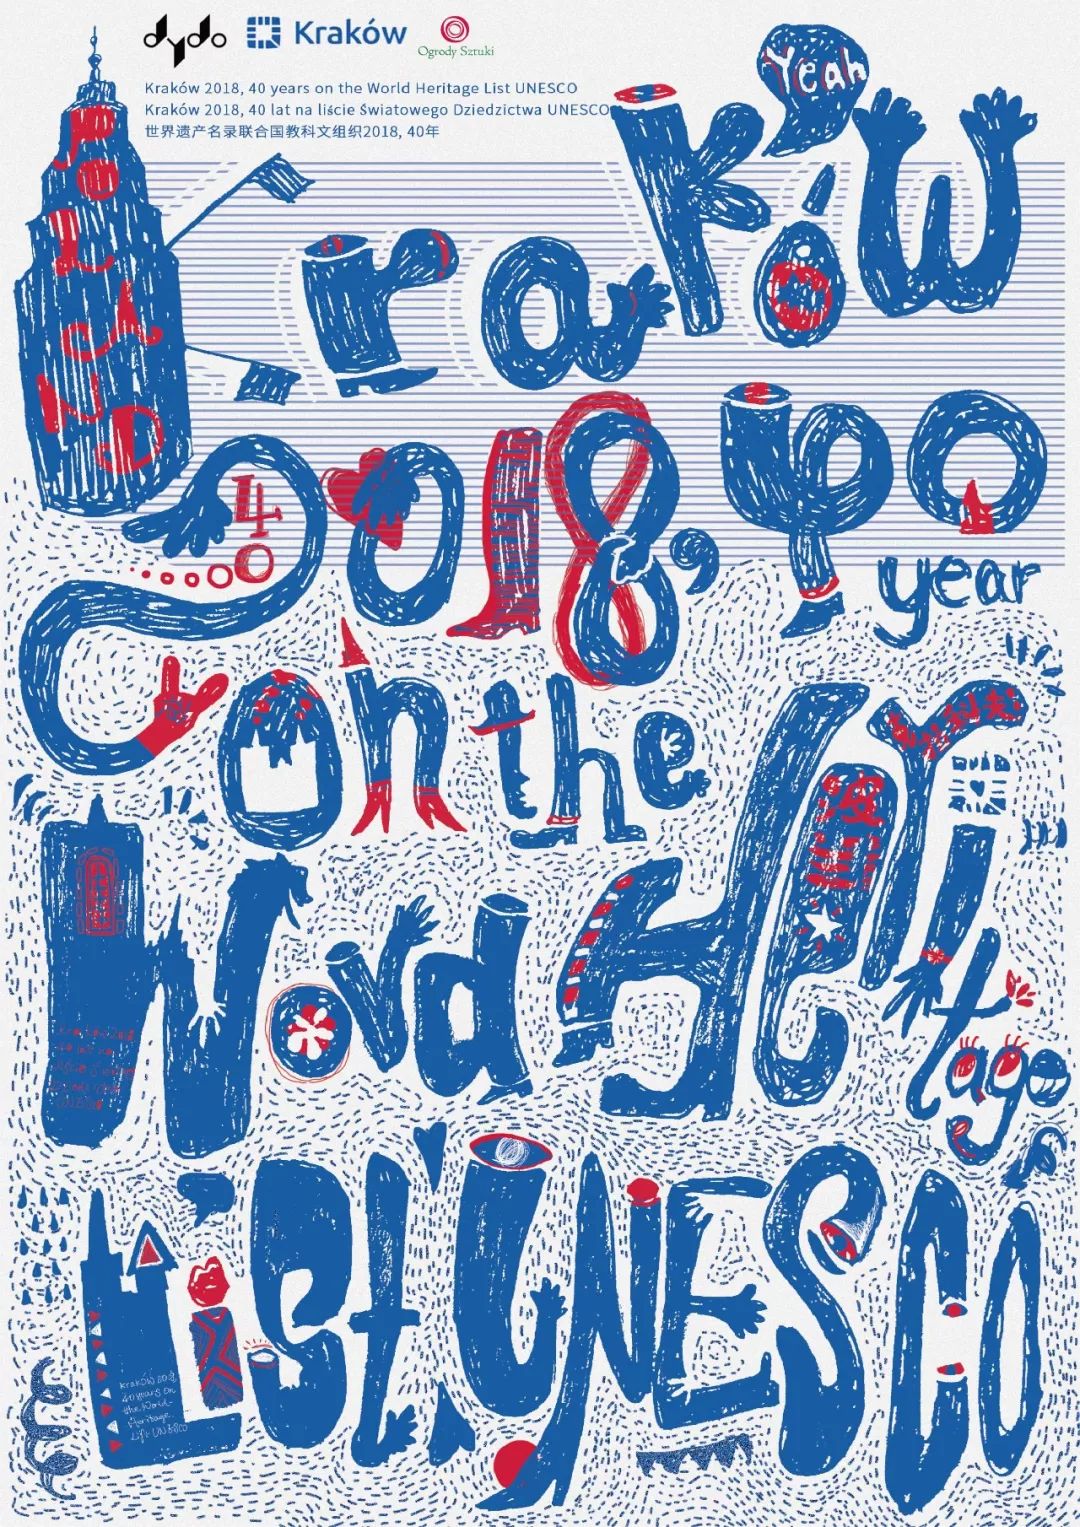 dydo Kraków Ogrody Sztuki
Kraków 2018, 40 years on the World Heritage List UNESCO
Kraków 2018, 40 lat na liście Światowego Dziedzictwa UNESCO
世界遗产名录联合国教科文组织2018, 40年
Yeah
POLAND
kraków
2018, 40
40
year
on the
World Heritage
List UNESCO
Kraków 2018
40 years on
the World
Heritage
List UNESCO